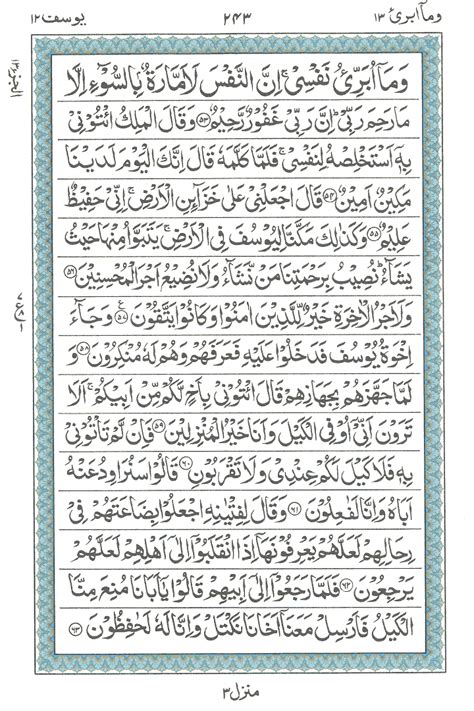 وما ابرئ ١٣ ٢٤٣ یوسف ١٢
وَمَاۤ اُبَرِّئُ نَفْسِیْ ۚ اِنَّ النَّفْسَ لَاَمَّارَةٌۢ بِالسُّوْٓءِ اِلَّا
مَا رَحِمَ رَبِّیْ ؕ اِنَّ رَبِّیْ غَفُوْرٌ رَّحِیْمٌ ﴿۵۳﴾ وَقَالَ الْمَلِكُ ائْتُوْنِیْ
بِهٖۤ اَسْتَخْلِصْهُ لِنَفْسِیْ ۚ فَلَمَّا كَلَّمَهٗ قَالَ اِنَّكَ الْیَوْمَ لَدَیْنَا
مَكِیْنٌ اَمِیْنٌ ﴿۵۴﴾ قَالَ اجْعَلْنِیْ عَلٰی خَزَآئِنِ الْاَرْضِ ۚ اِنِّیْ حَفِیْظٌ
عَلِیْمٌ ﴿۵۵﴾ وَكَذٰلِكَ مَكَّنَّا لِیُوْسُفَ فِی الْاَرْضِ ۚ یَتَبَوَّاُ مِنْهَا حَیْثُ
یَشَآءُ ؕ نُصِیْبُ بِرَحْمَتِنَا مَنْ نَّشَآءُ وَلَا نُضِیْعُ اَجْرَ الْمُحْسِنِیْنَ ﴿۵۶﴾
وَلَاَجْرُ الْاٰخِرَةِ خَیْرٌ لِّلَّذِیْنَ اٰمَنُوْا وَكَانُوْا یَتَّقُوْنَ ﴿۵۷﴾ وَجَآءَ
اِخْوَةُ یُوْسُفَ فَدَخَلُوْا عَلَیْهِ فَعَرَفَهُمْ وَهُمْ لَهٗ مُنْكِرُوْنَ ﴿۵۸﴾ وَ
لَمَّا جَهَّزَهُمْ بِجَهَازِهِمْ قَالَ ائْتُوْنِیْ بِاَخٍ لَّكُمْ مِّنْ اَبِیْكُمْ ۚ اَلَا
تَرَوْنَ اَنِّیْۤ اُوْفِی الْكَیْلَ وَاَنَا خَیْرُ الْمُنْزِلِیْنَ ﴿۵۹﴾ فَاِنْ لَّمْ تَاْتُوْنِیْ
بِهٖ فَلَا كَیْلَ لَكُمْ عِنْدِیْ وَلَا تَقْرَبُوْنِ ﴿۶۰﴾ قَالُوْا سَنُرَاوِدُ عَنْهُ
اَبَاهُ وَاِنَّا لَفٰعِلُوْنَ ﴿۶۱﴾ وَقَالَ لِفِتْیٰنِهِ اجْعَلُوْا بِضَاعَتَهُمْ فِیْ
رِحَالِهِمْ لَعَلَّهُمْ یَعْرِفُوْنَهَاۤ اِذَا انْقَلَبُوْۤا اِلٰۤی اَهْلِهِمْ لَعَلَّهُمْ
یَرْجِعُوْنَ ﴿۶۲﴾ فَلَمَّا رَجَعُوْۤا اِلٰۤی اَبِیْهِمْ قَالُوْا یٰۤاَبَانَا مُنِعَ مِنَّا
الْكَیْلُ فَاَرْسِلْ مَعَنَاۤ اَخَانَا نَكْتَلْ وَاِنَّا لَهٗ لَحٰفِظُوْنَ ﴿۶۳﴾
منزل ٣